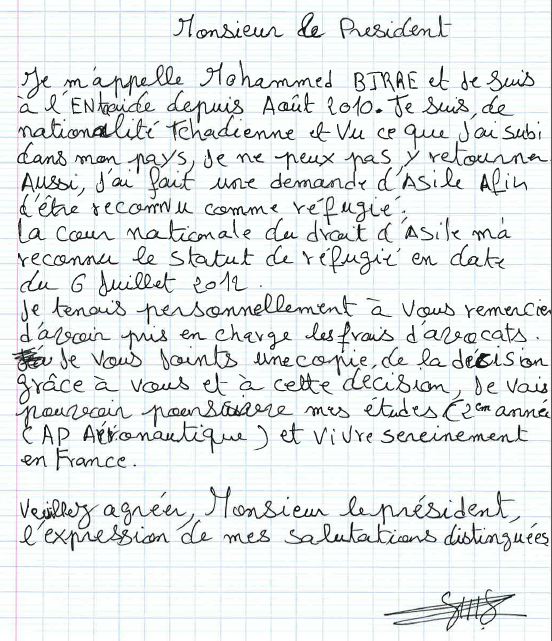 Monsieur le President
Je m'appelle Mohammed BIRRE et Je suis
à l'ENtraide depuis Août 2010. Je suis de
nationalité Tchadienne et Vu ce que J'ai subi
dans mon pays, Je ne peux pas y retourner
Aussi, J'ai fait une demande d'Asile Afin
d'être reconnu comme réfugié.
La Cour nationale du droit d'Asile m'a
reconnu le statut de réfugié en date
du 6 Juillet 2012.
Je tenais personnellement à Vous remercier
d'avoir pris en charge les frais d'avocats.
Je Vous Joints une copie de la décision
grâce à vous et à cette décision, Je Vais
pouvoir poursuivre mes études (2em année
CAP Aéronautique) et Vivre sereinement
en France.
Veuillez agréer, Monsieur le président,
l'expression de mes salutations distinguées